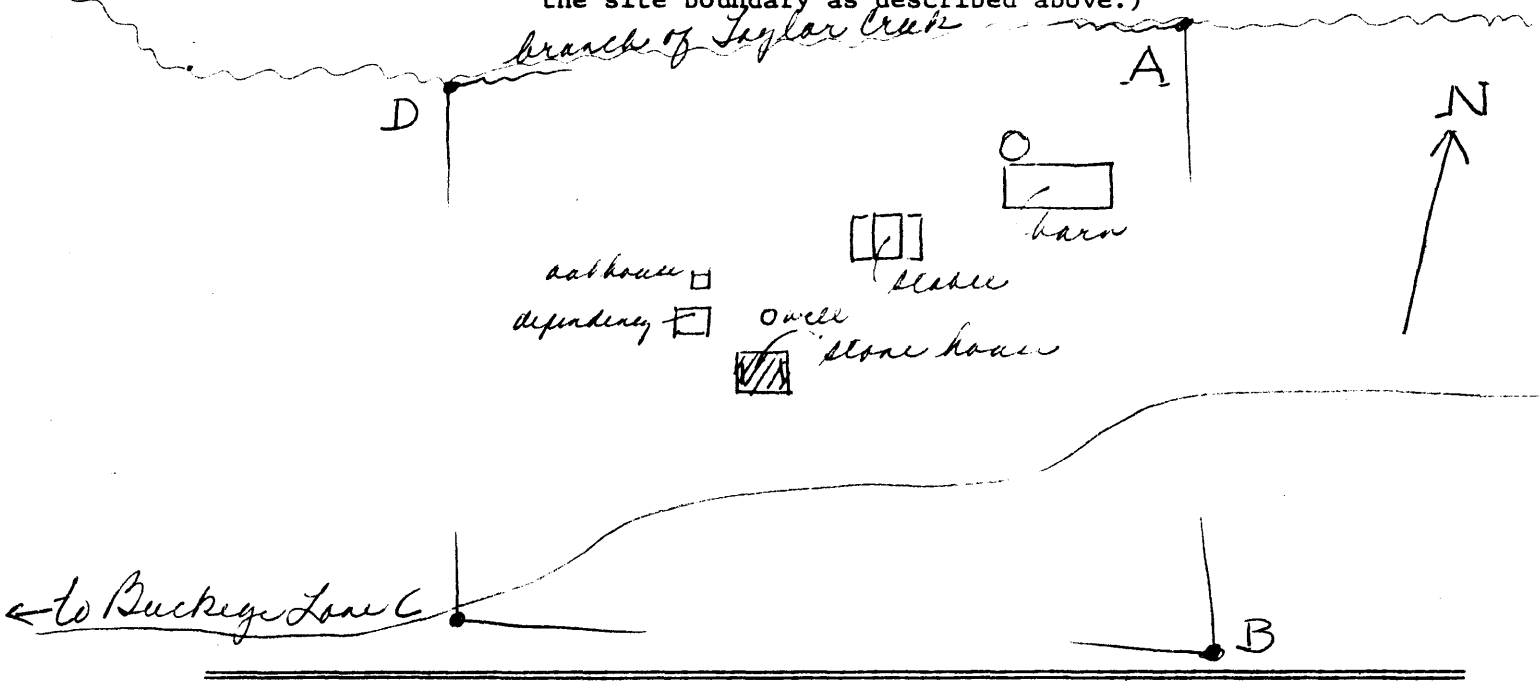 the site boundary as described above.)
branch of Taylor Creek
A
D
N
barn
outhouse
stable
dependency
well
stone house
← to Buckeye Lane C
B